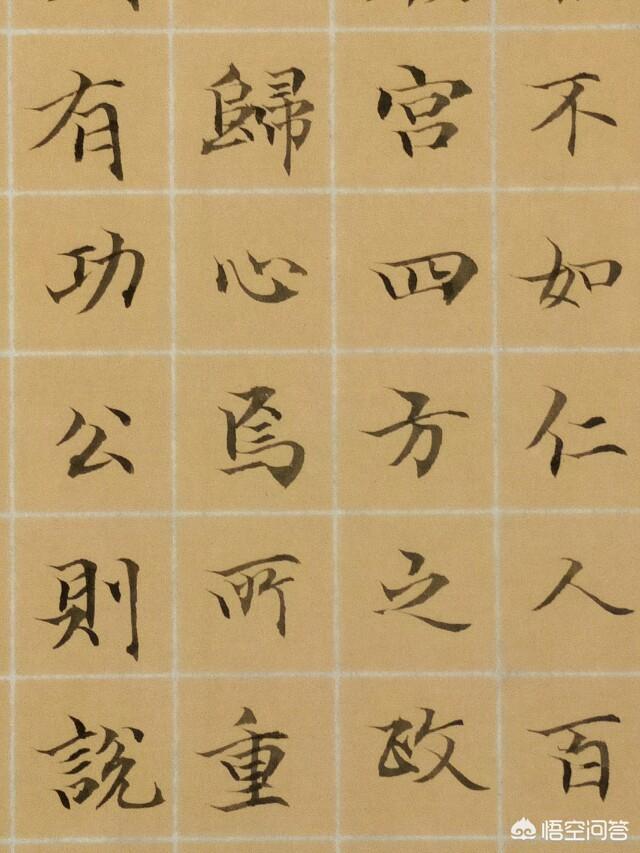 不如仁人百
官四方之政
歸心焉所重
有功公則說
悟空问答